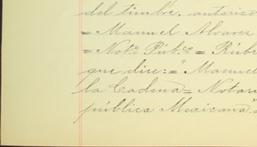 del timbre, autorizo
= Manuel Alvarez
= Not.º Púb.º = Rúbri
que dice: = "Manuel
la Cadena = Notar
pública Mexicana".